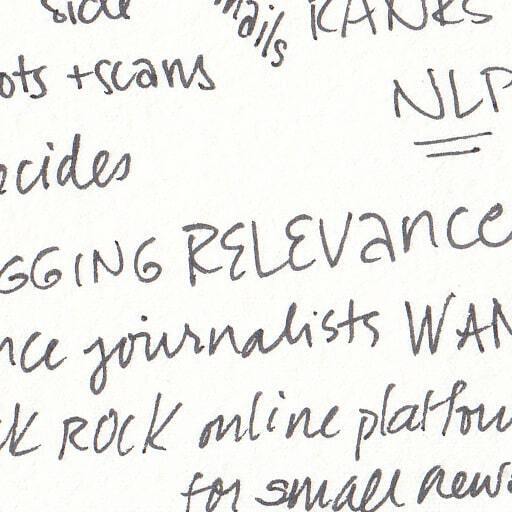 side
mails
RANKS
ots + scans
NLP
ecides
GGING RELEVance
nce journalists WAN
CK ROCK online platfor
for small news